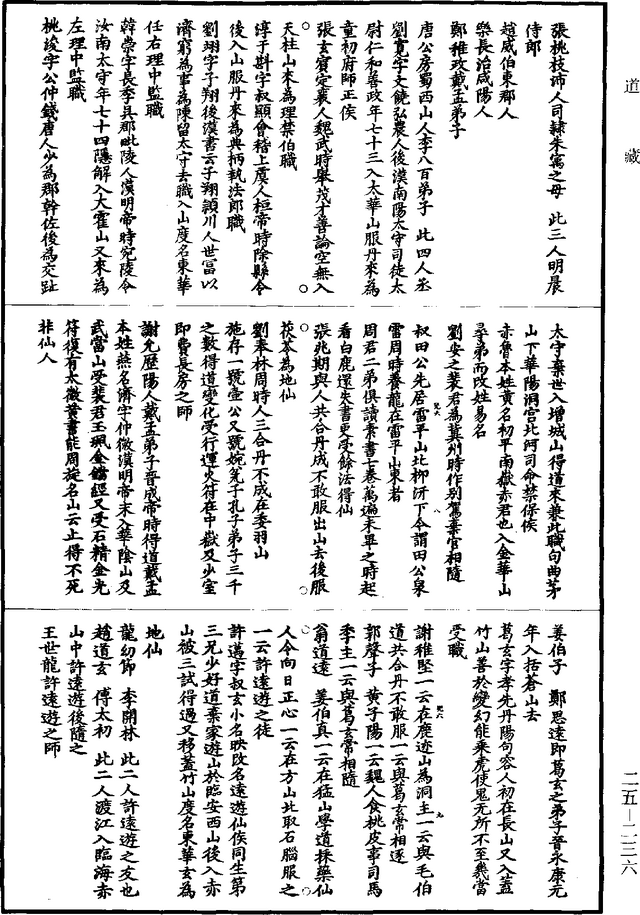 道藏
張桃枝沛人司隸朱寓之母　此三人明晨
侍郎
趙威伯東郡人
樂長治咸陽人
鄭稚政戴孟弟子
唐公房蜀西山人李八百弟子　此四人丞
劉寬字文饒弘農人後漢南陽太守司徒太
尉仁和善政年七十三入太華山服丹來為
童初府師正侯
張玄賓定襄人魏武時舉茂才善論空無入
天柱山來為理禁伯職
淳于斟字叔顯會稽上虞人桓帝時除縣令
後入山服丹來為典柄執法郎職
劉翊字子翔後漢書云子翔潁川人世富以
濟窮為事為陳留太守去職入山度名東華
任右理中監職
韓崇字長季吳郡毗陵人漢明帝時宛陵令
汝南太守年七十四隱解入大霍山又來為
左理中監職
桃浚字公仲錢唐人少為郡幹佐後為交趾
太守棄世入增城山得道來兼此職句曲茅
山下華陽洞宮北河司命禁保侯
赤魯本姓黃名初平南嶽赤君也入金華山
尋弟而改姓易名
劉安之裴君為冀州時作別駕棄官相隨
叔田公先居雷平山北柳汧下今謂田公泉
雷周時養龍在雷平山東者
周君二弟俱讀素書七卷萬遍未畢之時起
看白鹿還失書更受餘法得仙
張兆期與人共合丹成不敢服出山去後服
茯苓為地仙
劉奉林周時人三合丹不成在委羽山
施存一號壺公又號婉盆子孔子弟子三千
之數得道變化受行運火符在中嶽及少室
即費長房之師
謝允歷陽人戴孟弟子晉成帝時得道戴孟
本姓燕名濟字仲微漢明帝末入華陰山及
武當山受裴君玉珮金鐺經又受石精金光
符復有太微黃書能周旋名山云止得不死
非仙人
姜伯子　鄭思遠即葛玄之弟子晉永康元
年入括蒼山去
葛玄字孝先丹陽句容人初在長山又入蓋
竹山善於變幻能乘虎使鬼无所不至幾當
受職
謝稚堅一云在鹿迹山為洞主一云與毛伯
道共合丹不敢服一云與葛玄常相逐
郭聲子　黃子陽一云魏人食桃皮事司馬
季主一云與葛玄常相隨
翁道遠　姜伯真一云在猛山學道採藥仙
人令向日正心一云在方山北取石腦服之
一云許遠遊之徒
許邁字叔玄小名映改名遠遊仙侯同生第
三兄少好道棄家遊山於臨安西山後入赤
山被三試得過又移蓋竹山度名東華玄為
地仙
龍幼節　李開林　此二人許遠遊之友也
趙道玄　傅太初　此二人渡江入臨海赤
山中許遠遊後隨之
王世龍許遠遊之師
二五—二三六